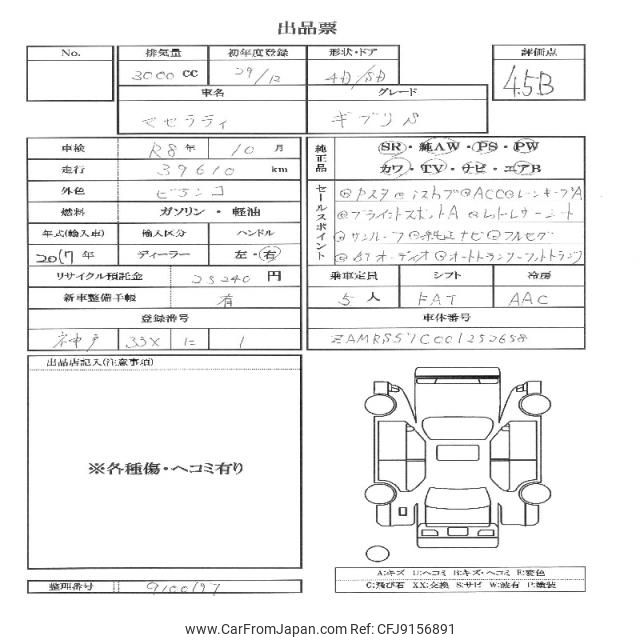 出品票
No. 排気量 初年度登録 形状・ドア 評価点
3000 cc 29/12 4D/5D 4.5B
車名 グレード
マセラティ ギブリ
車検 R8年 10月
純正品 SR・純AW・PS・PW
カワ・TV・ナビ・エアB
走行 39610 km
外色 ビアンコ
燃料 ガソリン・軽油
年式(輸入車) 輸入区分 ハンドル
2017年 ディーラー 左・右
セールスポイント
◎ACC◎レーンキープA
◎ブラインドスポットA ◎レッドレザーシート
◎サンルーフ ◎純正ナビ ◎フルセグ
オーディオ ◎オートトランク
リサイクル預託金 25240 円
乗車定員 シフト 冷房
新車整備手帳 有
5人 FAT AAC
登録番号 車体番号
神戸 33X に 1
ZAMRS51C001252658
出品店記入(注意事項)
※各種傷・ヘコミ有り
A:キズ U:ヘコミ B:キズ・ヘコミ E:変色
G:飛び石 XX:交換 S:サビ W:波有 P:塗装
整理番号 9100197
www.CarFromJapan.com - CFJ9156891